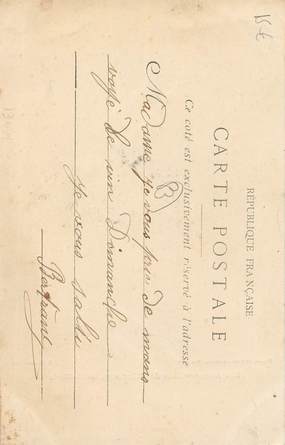 RÉPUBLIQUE FRANÇAISE
CARTE POSTALE
Ce coté est exclusivement réservé à l'adresse
B
Madame je vous de mans
de vin Dimanche
je vous salu
15 €